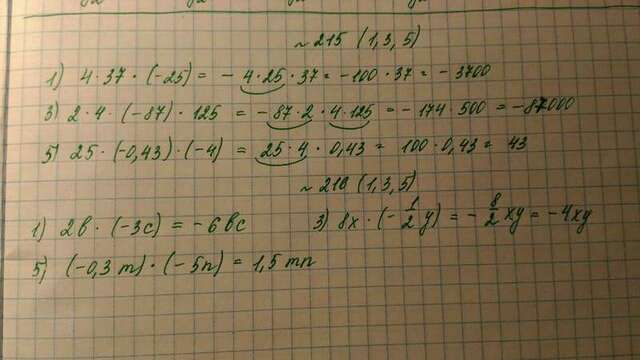 ~ 215 (1, 3, 5)
1) 4 · 37 · (-25) = - 4 · 25 · 37 = -100 · 37 = -3700
3) 2 · 4 · (-87) · 125 = - 87 · 2 · 4 · 125 = - 174 · 500 = -87000
5) 25 · (-0,43) · (-4) = 25 · 4 · 0,43 = 100 · 0,43 = 43
~ 216 (1, 3, 5)
1) 2в · (-3с) = -6вс 3) 8x · (-1/2 y) = - 8/2 xy = -4xy
5) (-0,3m) · (-5n) = 1,5mn